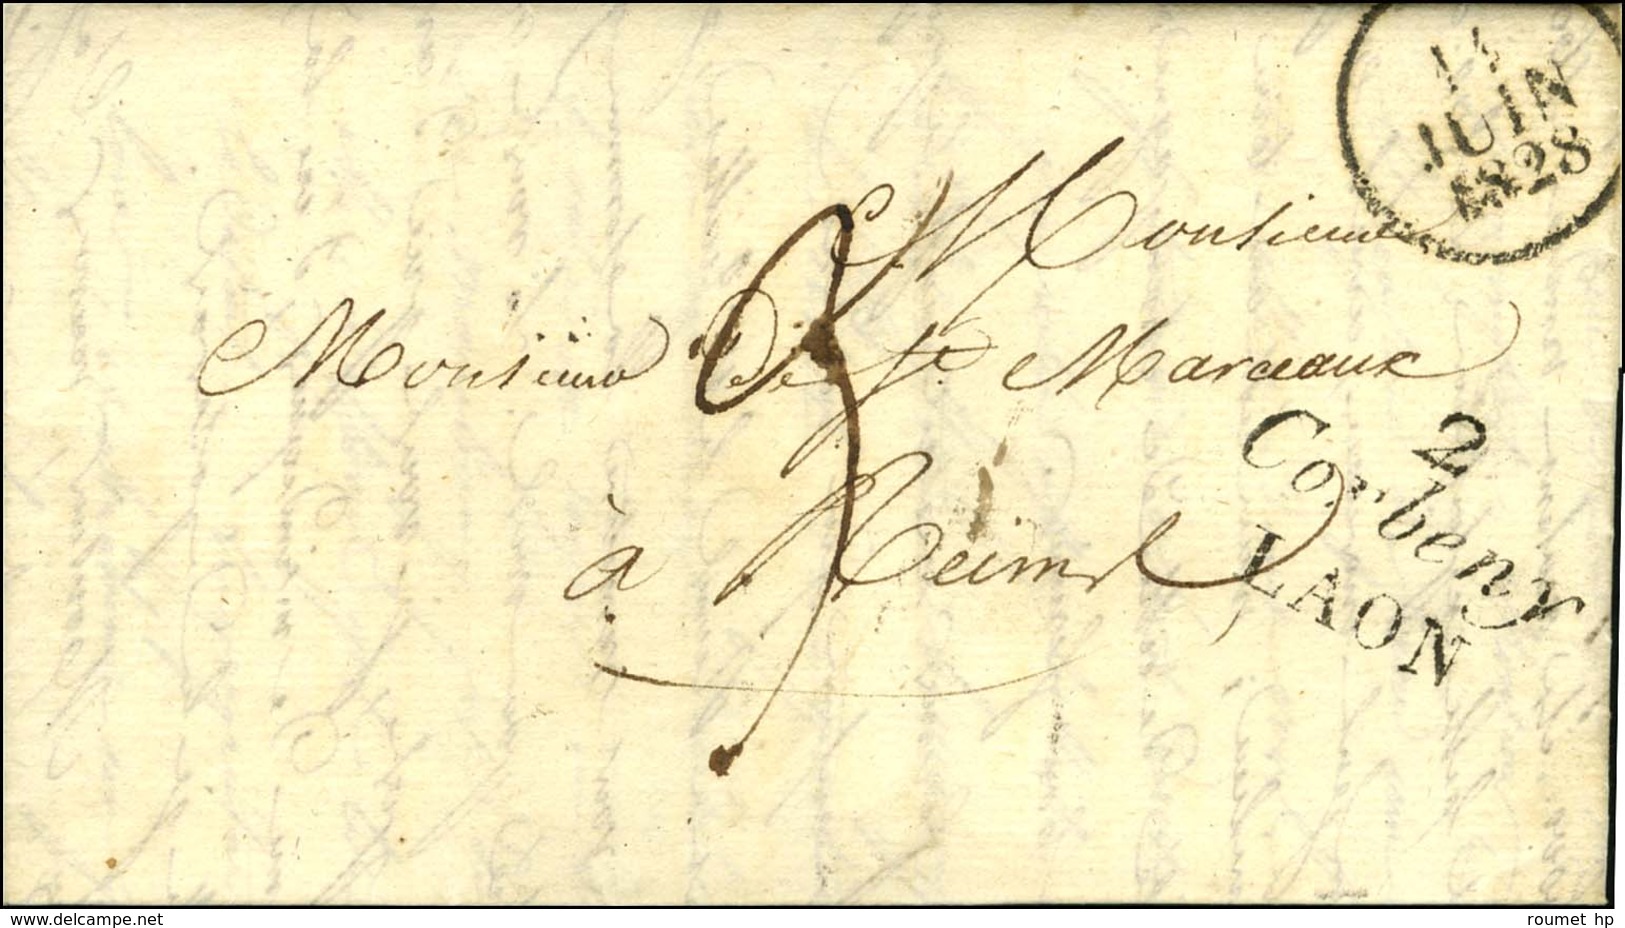 14
JUIN
1828
Monsieur
Monsieur De St. Marceaux
3
à Reims
2
Corbeny
LAON
www.delcampe.net
roumet hp